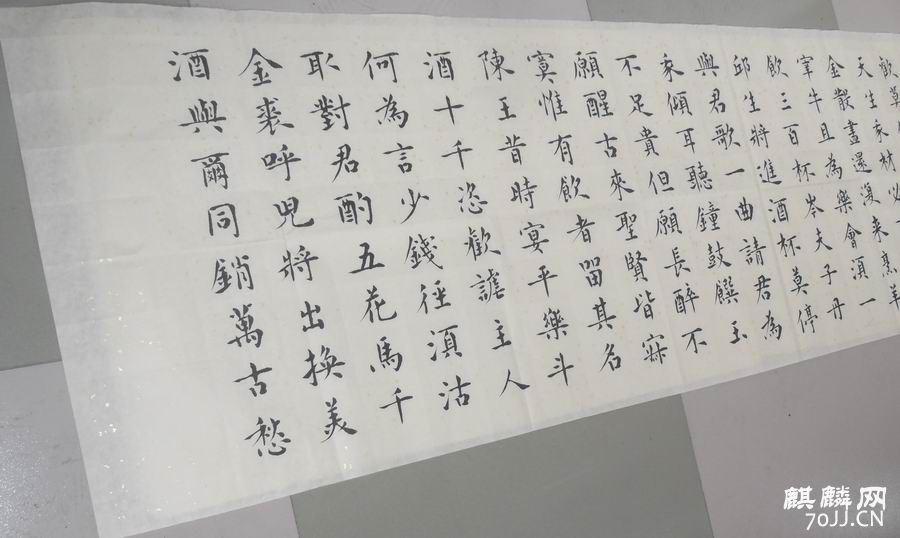 天生我材必
金散盡還復来烹羊
宰牛且為樂會須一
飲三百杯岑夫子丹
邱生將進酒杯莫停
與君歌一曲請君為
我傾耳聽鐘鼓饌玉
不足貴但願長醉不
願醒古來聖賢皆寐
寞惟有飲者留其名
陳王昔時宴平樂斗
酒十千恣歡謔主人
何為言少錢徑須沽
取對君酌五花馬千
金裘呼兒將出換美
酒與爾同銷萬古愁
麒麟网
70JJ.CN